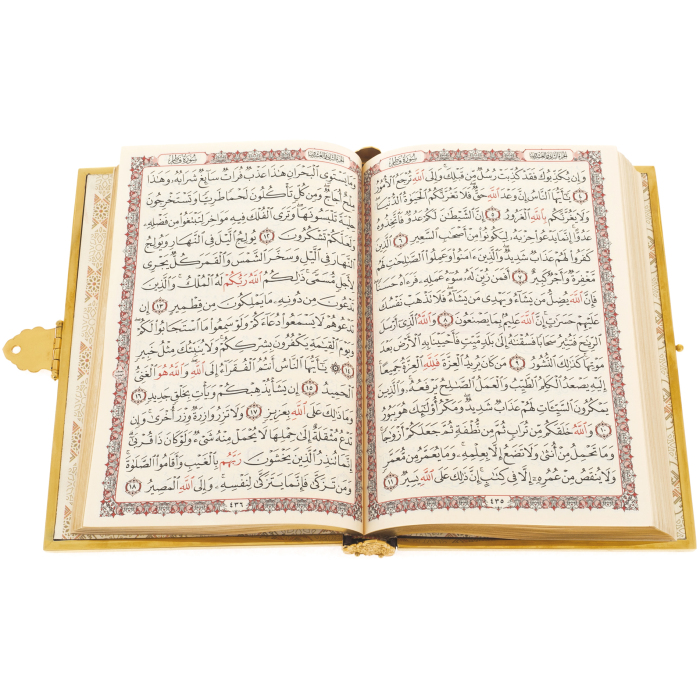 الجزء الثاني والعشرون
سُورَةُ فَاطِر
وَإِن يُكَذِّبُوكَ فَقَدْ كُذِّبَتْ رُسُلٌ مِّن قَبْلِكَ وَإِلَى اللَّهِ تُرْجَعُ الْأُمُورُ
﴿٤﴾ يَٰٓأَيُّهَا النَّاسُ إِنَّ وَعْدَ اللَّهِ حَقٌّ فَلَا تَغُرَّنَّكُمُ الْحَيَوٰةُ الدُّنْيَا
وَلَا يَغُرَّنَّكُم بِاللَّهِ الْغَرُورُ ﴿٥﴾ إِنَّ الشَّيْطَٰنَ لَكُمْ عَدُوٌّ فَاتَّخِذُوهُ
عَدُوًّا إِنَّمَا يَدْعُوا۟ حِزْبَهُۥ لِيَكُونُوا۟ مِنْ أَصْحَٰبِ السَّعِيرِ ﴿٦﴾ الَّذِينَ
كَفَرُوا۟ لَهُمْ عَذَابٌ شَدِيدٌ وَالَّذِينَ ءَامَنُوا۟ وَعَمِلُوا۟ الصَّٰلِحَٰتِ لَهُم
مَّغْفِرَةٌ وَأَجْرٌ كَبِيرٌ ﴿٧﴾ أَفَمَن زُيِّنَ لَهُۥ سُوٓءُ عَمَلِهِۦ فَرَءَاهُ حَسَنًا
فَإِنَّ اللَّهَ يُضِلُّ مَن يَشَآءُ وَيَهْدِى مَن يَشَآءُ فَلَا تَذْهَبْ نَفْسُكَ
عَلَيْهِمْ حَسَرَٰتٍ إِنَّ اللَّهَ عَلِيمٌۢ بِمَا يَصْنَعُونَ ﴿٨﴾ وَاللَّهُ الَّذِىٓ أَرْسَلَ
الرِّيَٰحَ فَتُثِيرُ سَحَابًا فَسُقْنَٰهُ إِلَىٰ بَلَدٍ مَّيِّتٍ فَأَحْيَيْنَا بِهِ الْأَرْضَ بَعْدَ
مَوْتِهَا كَذَٰلِكَ النُّشُورُ ﴿٩﴾ مَن كَانَ يُرِيدُ الْعِزَّةَ فَلِلَّهِ الْعِزَّةُ جَمِيعًا
إِلَيْهِ يَصْعَدُ الْكَلِمُ الطَّيِّبُ وَالْعَمَلُ الصَّٰلِحُ يَرْفَعُهُۥ وَالَّذِينَ
يَمْكُرُونَ السَّيِّـَٔاتِ لَهُمْ عَذَابٌ شَدِيدٌ وَمَكْرُ أُو۟لَٰٓئِكَ هُوَ يَبُورُ
﴿١٠﴾ وَاللَّهُ خَلَقَكُم مِّن تُرَابٍ ثُمَّ مِن نُّطْفَةٍ ثُمَّ جَعَلَكُمْ أَزْوَٰجًا
وَمَا تَحْمِلُ مِنْ أُنثَىٰ وَلَا تَضَعُ إِلَّا بِعِلْمِهِۦ وَمَا يُعَمَّرُ مِن مُّعَمَّرٍ
وَلَا يُنقَصُ مِنْ عُمُرِهِۦٓ إِلَّا فِى كِتَٰبٍ إِنَّ ذَٰلِكَ عَلَى اللَّهِ يَسِيرٌ ﴿١١﴾
٤٣٥
الجزء الثاني والعشرون
سُورَةُ فَاطِر
وَمَا يَسْتَوِى الْبَحْرَانِ هَٰذَا عَذْبٌ فُرَاتٌ سَآئِغٌ شَرَابُهُۥ وَهَٰذَا
مِلْحٌ أُجَاجٌ وَمِن كُلٍّ تَأْكُلُونَ لَحْمًا طَرِيًّا وَتَسْتَخْرِجُونَ
حِلْيَةً تَلْبَسُونَهَا وَتَرَى الْفُلْكَ فِيهِ مَوَاخِرَ لِتَبْتَغُوا۟ مِن فَضْلِهِۦ
وَلَعَلَّكُمْ تَشْكُرُونَ ﴿١٢﴾ يُولِجُ الَّيْلَ فِى النَّهَارِ وَيُولِجُ
النَّهَارَ فِى الَّيْلِ وَسَخَّرَ الشَّمْسَ وَالْقَمَرَ كُلٌّ يَجْرِى
لِأَجَلٍ مُّسَمًّى ذَٰلِكُمُ اللَّهُ رَبُّكُمْ لَهُ الْمُلْكُ وَالَّذِينَ
تَدْعُونَ مِن دُونِهِۦ مَا يَمْلِكُونَ مِن قِطْمِيرٍ ﴿١٣﴾ إِن
تَدْعُوهُمْ لَا يَسْمَعُوا۟ دُعَآءَكُمْ وَلَوْ سَمِعُوا۟ مَا اسْتَجَابُوا۟ لَكُمْ
وَيَوْمَ الْقِيَٰمَةِ يَكْفُرُونَ بِشِرْكِكُمْ وَلَا يُنَبِّئُكَ مِثْلُ خَبِيرٍ
﴿١٤﴾ يَٰٓأَيُّهَا النَّاسُ أَنتُمُ الْفُقَرَآءُ إِلَى اللَّهِ وَاللَّهُ هُوَ الْغَنِىُّ
الْحَمِيدُ ﴿١٥﴾ إِن يَشَأْ يُذْهِبْكُمْ وَيَأْتِ بِخَلْقٍ جَدِيدٍ ﴿١٦﴾
وَمَا ذَٰلِكَ عَلَى اللَّهِ بِعَزِيزٍ ﴿١٧﴾ وَلَا تَزِرُ وَازِرَةٌ وِزْرَ أُخْرَىٰ وَإِن
تَدْعُ مُثْقَلَةٌ إِلَىٰ حِمْلِهَا لَا يُحْمَلْ مِنْهُ شَىْءٌ وَلَوْ كَانَ ذَا قُرْبَىٰٓ
إِنَّمَا تُنذِرُ الَّذِينَ يَخْشَوْنَ رَبَّهُم بِالْغَيْبِ وَأَقَامُوا۟ الصَّلَوٰةَ
وَمَن تَزَكَّىٰ فَإِنَّمَا يَتَزَكَّىٰ لِنَفْسِهِۦ وَإِلَى اللَّهِ الْمَصِيرُ ﴿١٨﴾
٤٣٦